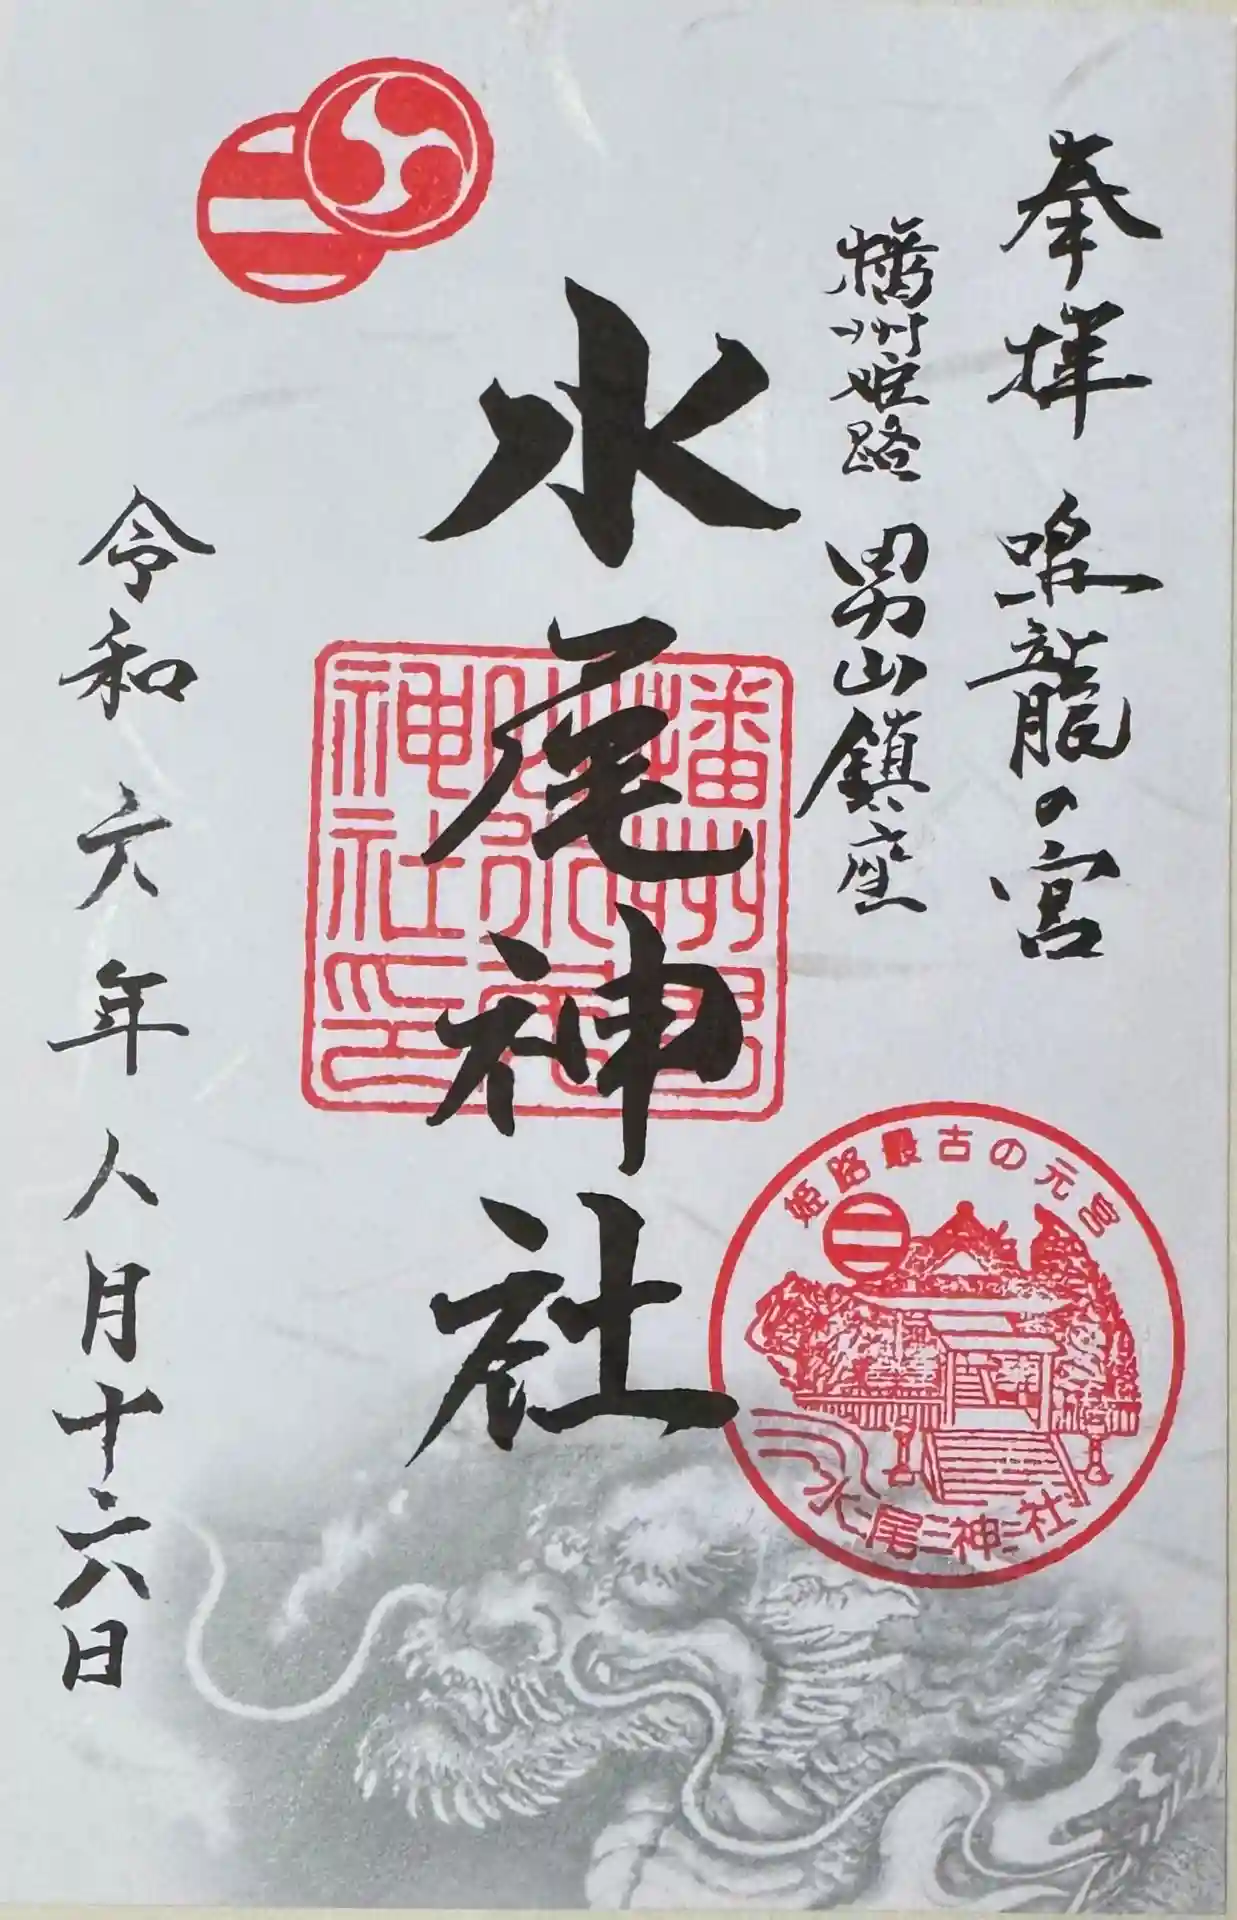 奉拝 鳴龍の宮
播州姫路 男山鎮座
水尾神社
播州男
山水尾
神社印
姫路最古の元宮
水尾神社
令和六年八月十六日